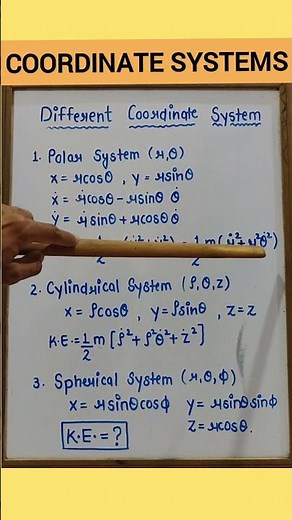 COORDINATE SYSTEMS
Different Coordinate System
1. Polar System (r,θ)
x = rcosθ , y = rsinθ
ẋ = ṙcosθ - rsinθ θ̇
ẏ = ṙsinθ + rcosθ θ̇
1/2 m(ṙ²+r²θ̇²)
2. Cylindrical System (ρ,θ,z)
x = ρcosθ , y = ρsinθ , z = z
K.E. = 1/2 m [ρ̇²+ρ²θ̇²+ż²]
3. Spherical System (r,θ,ϕ)
x = rsinθcosϕ y = rsinθsinϕ
z = rcosθ.
K.E. = ?